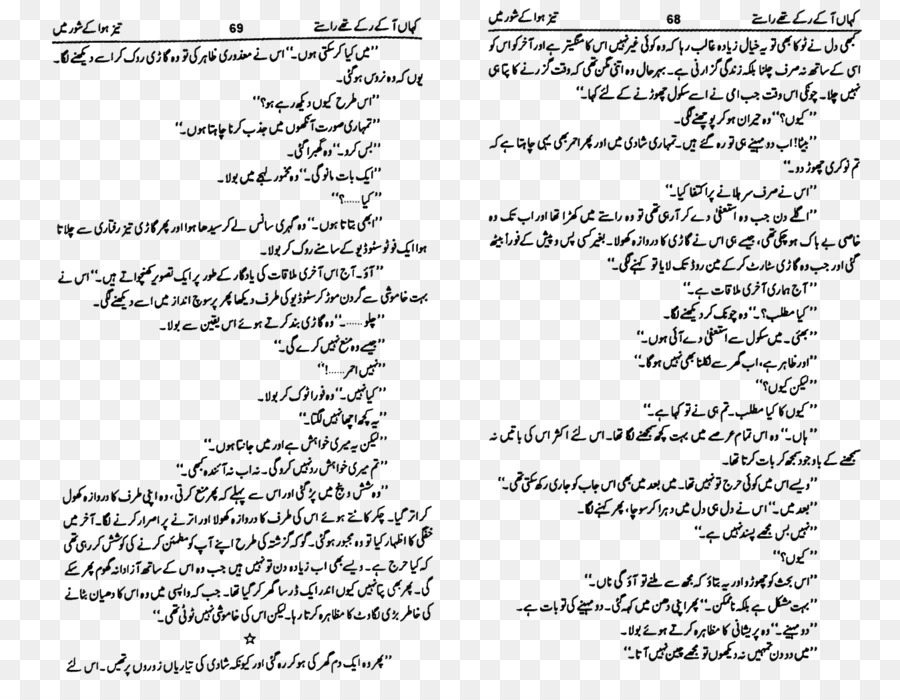 کہاں آ کے رکے تھے راستے 68 تیز ہوا کے شور میں
کبھی دل نے ٹوکا بھی تو یہ خیال زیادہ غالب رہا کہ وہ کوئی غیر نہیں اس کا منگیتر ہے اور آخر کو اس کو
اسی کے ساتھ نہ صرف چلنا بلکہ زندگی گزارنی ہے۔ بہر حال وہ اتنی مگن تھی کہ وقت گزرنے کا پتا ہی
نہیں چلا۔ چونکی اس وقت جب امی نے اسے سکول چھوڑنے کے لئے کہا۔“
”کیوں؟“ وہ حیران ہو کر پوچھنے لگی۔
”بیٹا! اب دو مہینے ہی تو رہ گئے ہیں۔ تمہاری شادی میں اور پھر احمر بھی یہی چاہتا ہے کہ
تم نوکری چھوڑ دو۔“
”اس نے صرف سر ہلانے پر اکتفا کیا۔“
”اگلے دن جب وہ استعفیٰ دے کر آ رہی تھی تو وہ راستے میں کھڑا تھا اور اب تک وہ
خاصی بے باک ہو چکی تھی، جیسے ہی اس نے گاڑی کا دروازہ کھولا۔ بغیر کسی پس و پیش کے فوراً بیٹھ
گئی اور جب وہ گاڑی سٹارٹ کر کے مین روڈ تک لایا تو کہنے لگی۔“
”آج ہماری آخری ملاقات ہے۔“
”کیا مطلب؟“ وہ چونک کر دیکھنے لگا۔
”بھئی۔ میں سکول سے استعفیٰ دے آئی ہوں۔“
”اور ظاہر ہے، اب گھر سے نکلنا بھی نہیں ہو گا۔“
”لیکن کیوں؟“
”کیوں کا کیا مطلب۔ تم ہی نے تو کہا ہے۔“
”ہاں۔“ وہ اس تمام عرصے میں بہت کچھ سمجھنے لگا تھا۔ اس لئے اکثر اس کی باتیں نہ
سمجھنے کے باوجود سمجھ کر بات کرتا تھا۔
”ویسے اس میں کوئی حرج تو نہیں تھا۔ میں بعد میں بھی اس جاب کو جاری رکھ سکتی تھی۔“
”بعد میں۔“ اس نے دل ہی دل میں دہرا کر سوچا، پھر کہنے لگا۔
”نہیں بس مجھے پسند نہیں ہے۔“
”کیوں؟“
”اس بحث کو چھوڑو اور یہ بتاؤ کہ مجھ سے ملنے تو آؤ گی ناں۔“
”بہت مشکل ہے بلکہ ناممکن۔“ پھر اپنی دھن میں کہہ گئی۔ دو مہینے کی تو بات ہے۔
”دو مہینے۔“ وہ پریشانی کا مظاہرہ کرتے ہوئے بولا۔
”میں دو دن تمہیں نہ دیکھوں تو مجھے چین نہیں آتا۔“
کہاں آ کے رکے تھے راستے 69 تیز ہوا کے شور میں
”میں کیا کر سکتی ہوں۔“ اس نے معذوری ظاہر کی تو وہ گاڑی روک کر اسے دیکھنے لگا۔
یوں کہ وہ نروس ہو گئی۔
”اس طرح کیوں دیکھ رہے ہو؟“
”تمہاری صورت آنکھوں میں جذب کرنا چاہتا ہوں۔“
”بس کرو۔“ وہ گھبرا گئی۔
”ایک بات مانو گی۔“ وہ مخمور لہجے میں بولا۔
”کیا......؟“
”ابھی بتاتا ہوں۔“ وہ گہری سانس لے کر سیدھا ہوا اور پھر گاڑی تیز رفتاری سے چلاتا
ہوا ایک فوٹو سٹوڈیو کے سامنے روک کر بولا۔
”آؤ۔ آج اس آخری ملاقات کی یادگار کے طور پر ایک تصویر کھنچواتے ہیں۔“ اس نے
بہت خاموشی سے گردن موڑ کر سٹوڈیو کی طرف دیکھا پھر پرسوچ انداز میں اسے دیکھنے لگی۔
”چلو......۔“ وہ گاڑی بند کرتے ہوئے اس یقین سے بولا۔
”جیسے وہ منع نہیں کرے گی۔“
”نہیں احمر......!“
”کیا نہیں۔“ وہ فوراً ٹوک کر بولا۔
”یہ کچھ اچھا نہیں لگتا۔“
”لیکن یہ میری خواہش ہے اور میں جانتا ہوں۔“
”تم میری خواہش رد نہیں کرو گی۔ نہ اب نہ آئندہ کبھی۔“
”وہ شش و پنج میں پڑ گئی اور اس سے پہلے کہ پھر منع کرتی، وہ اپنی طرف کا دروازہ کھول
کر اتر گیا۔ چکر کاٹتے ہوئے اس کی طرف کا دروازہ کھولا اور اترنے پر اصرار کرنے لگا۔ آخر میں
خفگی کا اظہار کیا تو وہ مجبور ہو گئی۔ گو کہ گزشتہ کی طرح اپنے آپ کو مطمئن کرنے کی کوشش کر رہی تھی
کہ کیا حرج ہے۔ ویسے بھی اب زیادہ دن تو نہیں ہیں جب وہ اس کے ساتھ آزادانہ گھوم پھر سکے
گی۔ پھر بھی پتا نہیں کیوں اندر ایک ڈر سا گھر کر گیا تھا۔ جب کہ واپسی میں وہ اس کا دھیان بٹانے
کی خاطر بڑی لگاوٹ کا مظاہرہ کرتا رہا۔ لیکن اس کی خاموشی نہیں ٹوٹی تھی۔“
☆
”پھر وہ ایک دم گھر کی ہو کر رہ گئی اور کیونکہ شادی کی تیاریاں زوروں پر تھیں۔ اس لئے